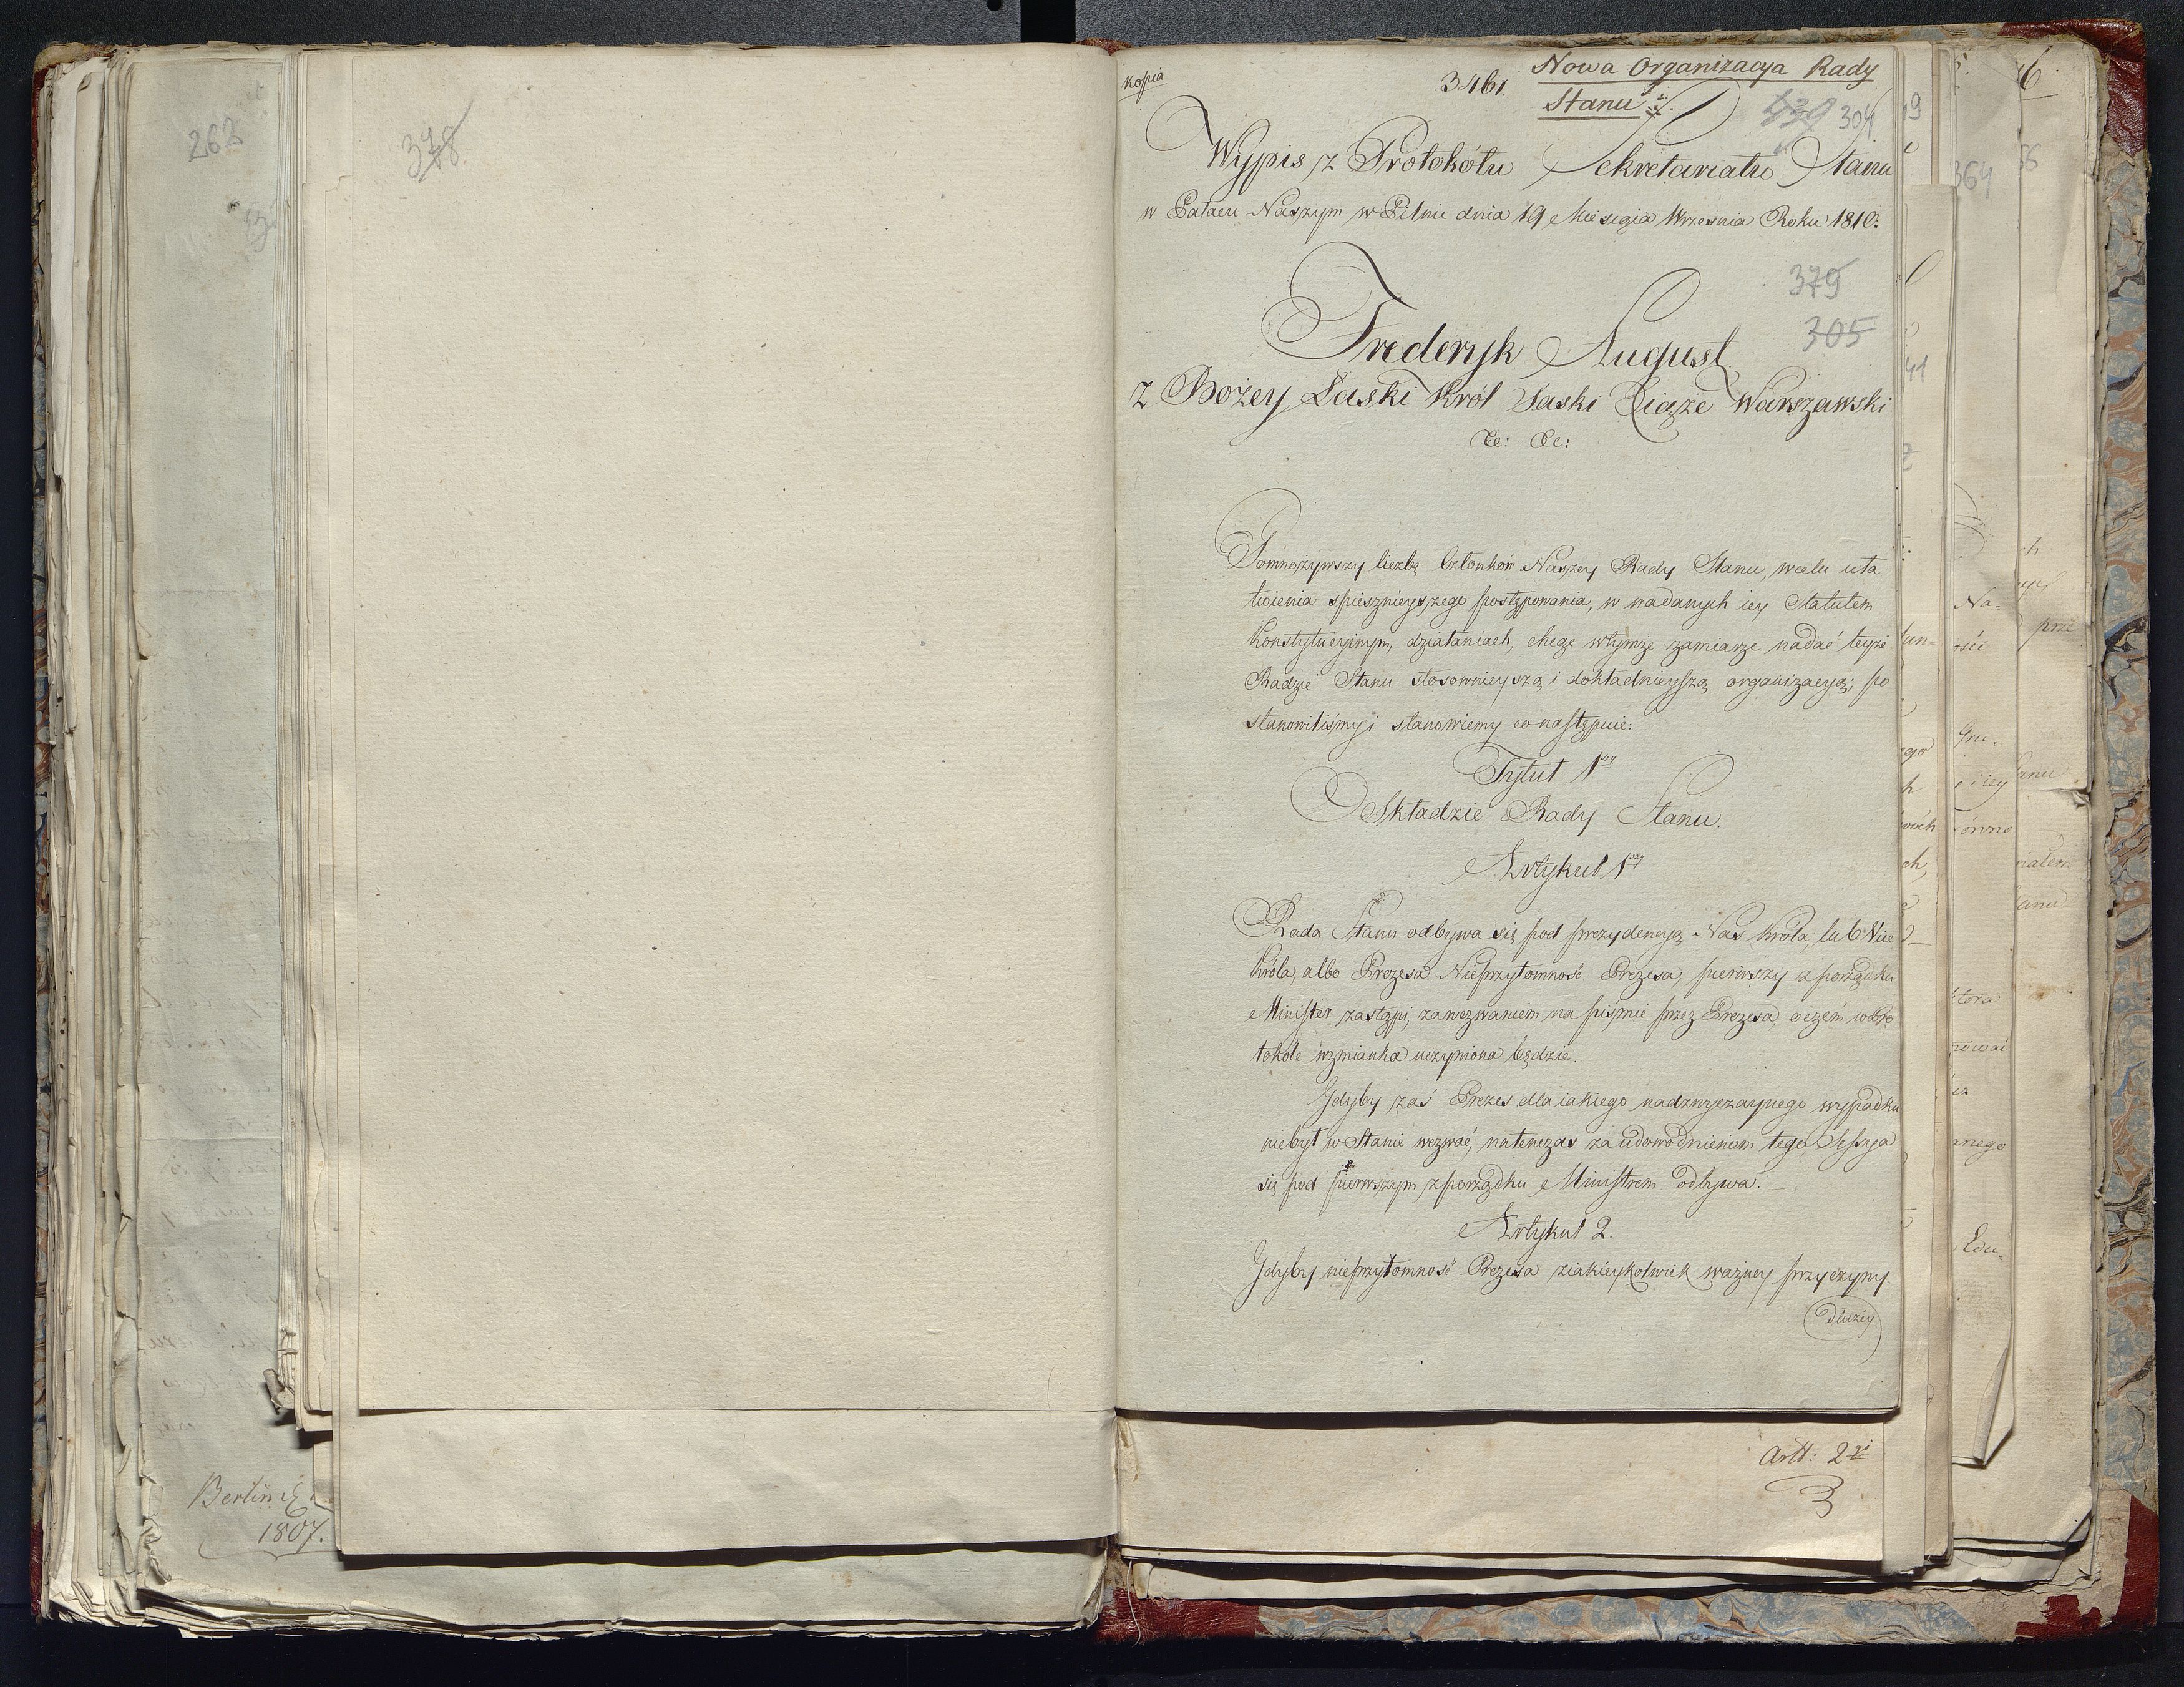 262
378.
Berlin d.
1807.
Kopia
3461.
Nowa Organizacya Rady
Stanu
439 304
Wypis z Protokółu Sekretariatu Stanu
w Pałacu Naszym w Pilnic dnia 19 Miesiąca Września Roku 1810.
379
305
Frederyk August
Z Bożey Łaski Król Saski Xiąże Warszawski
&c: &c:
Pomnożywszy liczbę Członków Naszey Rady Stanu, wcelu uła
twienia spiesznieyszego postępowania, w nadanych iey Statutem
Konstytucyinym, działaniach, chcąc wtymże zamiarze nadać teyże
Radzie Stanu stosownieyszą i dokładnieyszą organizacyą; po
stanowiliśmy i stanowiemy co następuie:
Tytuł 1szy
O Składzie Rady Stanu.
Artykuł 1szy
Rada Stanu odbywa się pod prezydencyą Nas Króla, lub Vice
Króla, albo Prezesa. Nieprzytomność Prezesa, pierwszy z porządku
Minister zastąpi, zawezwaniem na piśmie przez Prezesa, oczém w Pro
tokóle wzmianka uczyniona będzie.
Gdyby zaś Prezes dla iakiego nadzwyczaynego wypadku
niebył w Stanie wezwać, natenczas za udowodnieniem tego, Sessya
się pod pierwszym z porządku Ministrem odbywa.
Artykuł 2.
Gdyby nieprzytomność Prezesa ziakieykolwiek ważney przyczyny
dłużey
Artt: 2gi
364
6
56